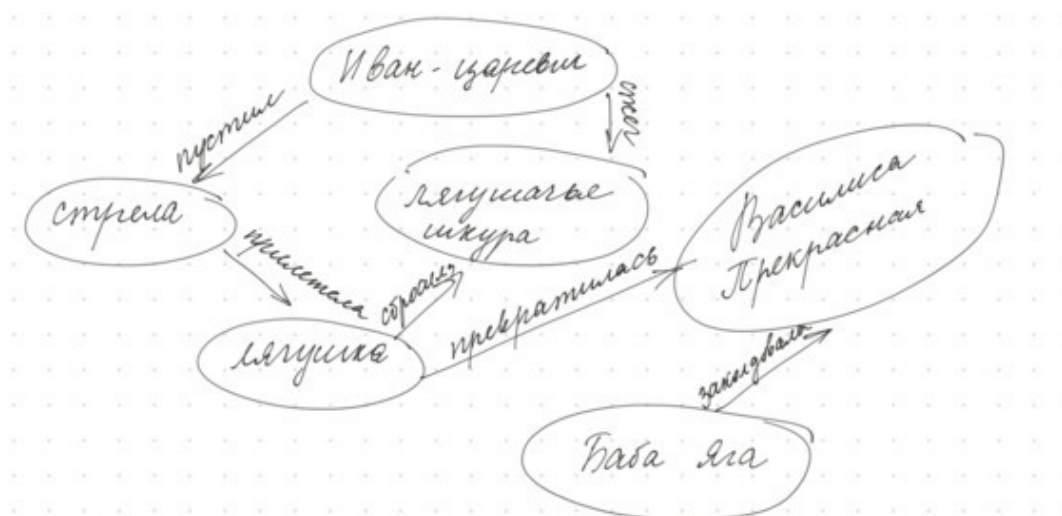 Иван-царевич
пустил
сжёг
стрела
лягушачье
шкура
Василиса
Прекрасная
прилетела
сбросила
превратилась
лягушка
заколдовала
Баба Яга